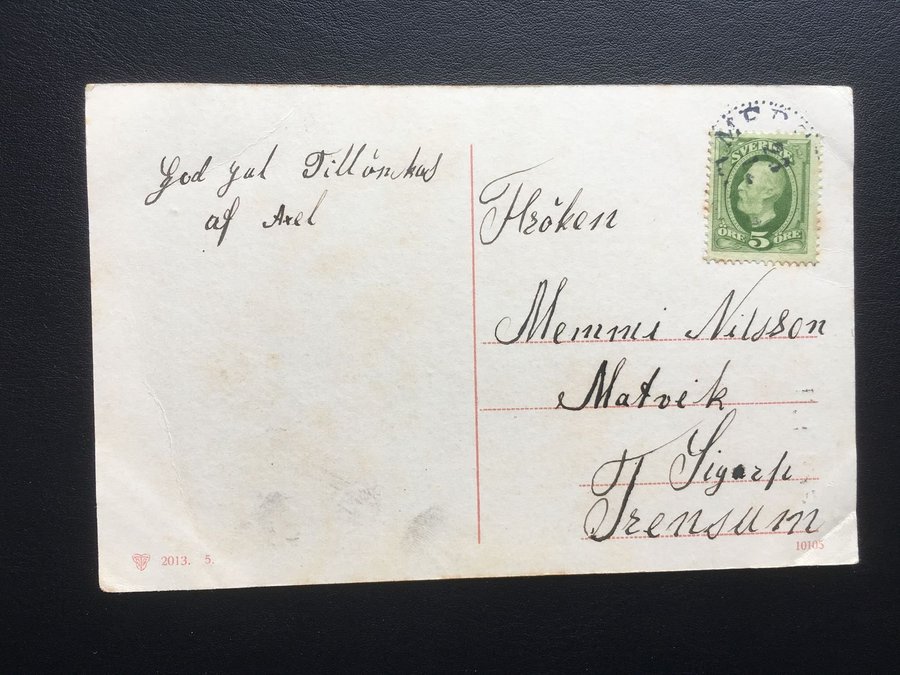 God Jul Tillönskas
af Axel
Fröken
Memmi Nilsson
Matvik
Sigarp
Trensum
SVERIGE
ÖRE 5 ÖRE
2013. 5.
10105